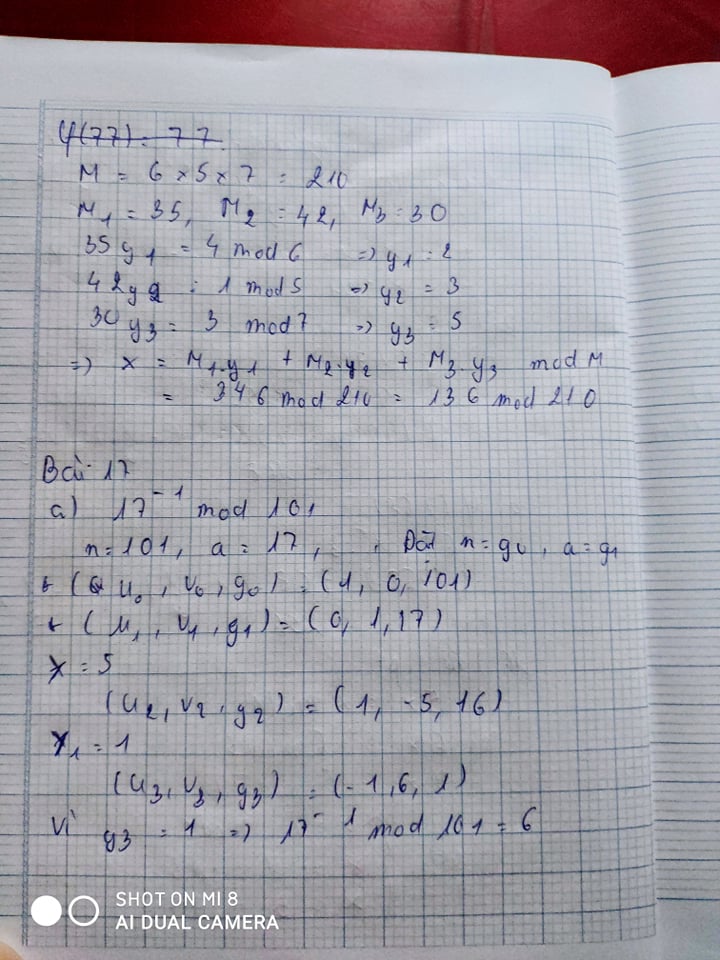 φ(77) = 77.
M = 6 × 5 × 7 = 210
M1 = 35, M2 = 42, M3 = 30
35y1 = 4 mod 6 => y1 = 2
42y2 = 1 mod 5 => y2 = 3
30y3 = 3 mod 7 => y3 = 5
=> x = M1.y1 + M2.y2 + M3.y3 mod M
= 346 mod 210 = 136 mod 210
Bài 17
a) 17^-1 mod 101
n = 101, a = 17, Đặt n = g0, a = g1
+ (u0, v0, g0) = (1, 0, 101)
+ (u1, v1, g1) = (0, 1, 17)
y = 5
(u2, v2, g2) = (1, -5, 16)
y1 = 1
(u3, v3, g3) = (-1, 6, 1)
Vì g3 = 1 => 17^-1 mod 101 = 6
SHOT ON MI 8
AI DUAL CAMERA